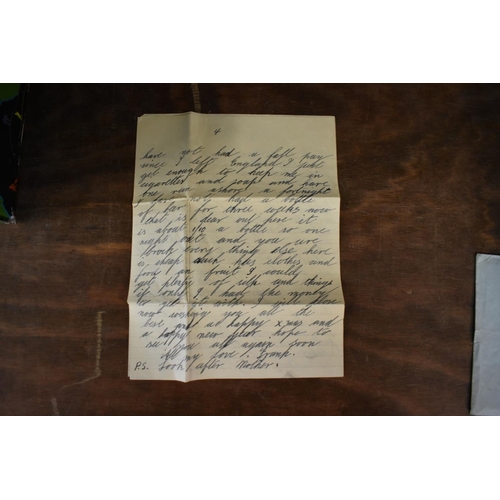 4
have not had a full pay
since I left England I just
get enough to keep me in
cigarettes and soap and have
one run ashore a fortnight
had a bottle
of for three weeks now
that is dear out here it
is about 1/10 a bottle so one
night out and you are
broke every thing else here
is cheap such has clothes and
food an fruit I could
get plenty of silk and things
if only I had the money
to get it with. I will close
now wishing you all the
best and a happy xmas and
a happy new year hope to
see you all again soon
all my love. Frank.
P.S. Look after Mother.